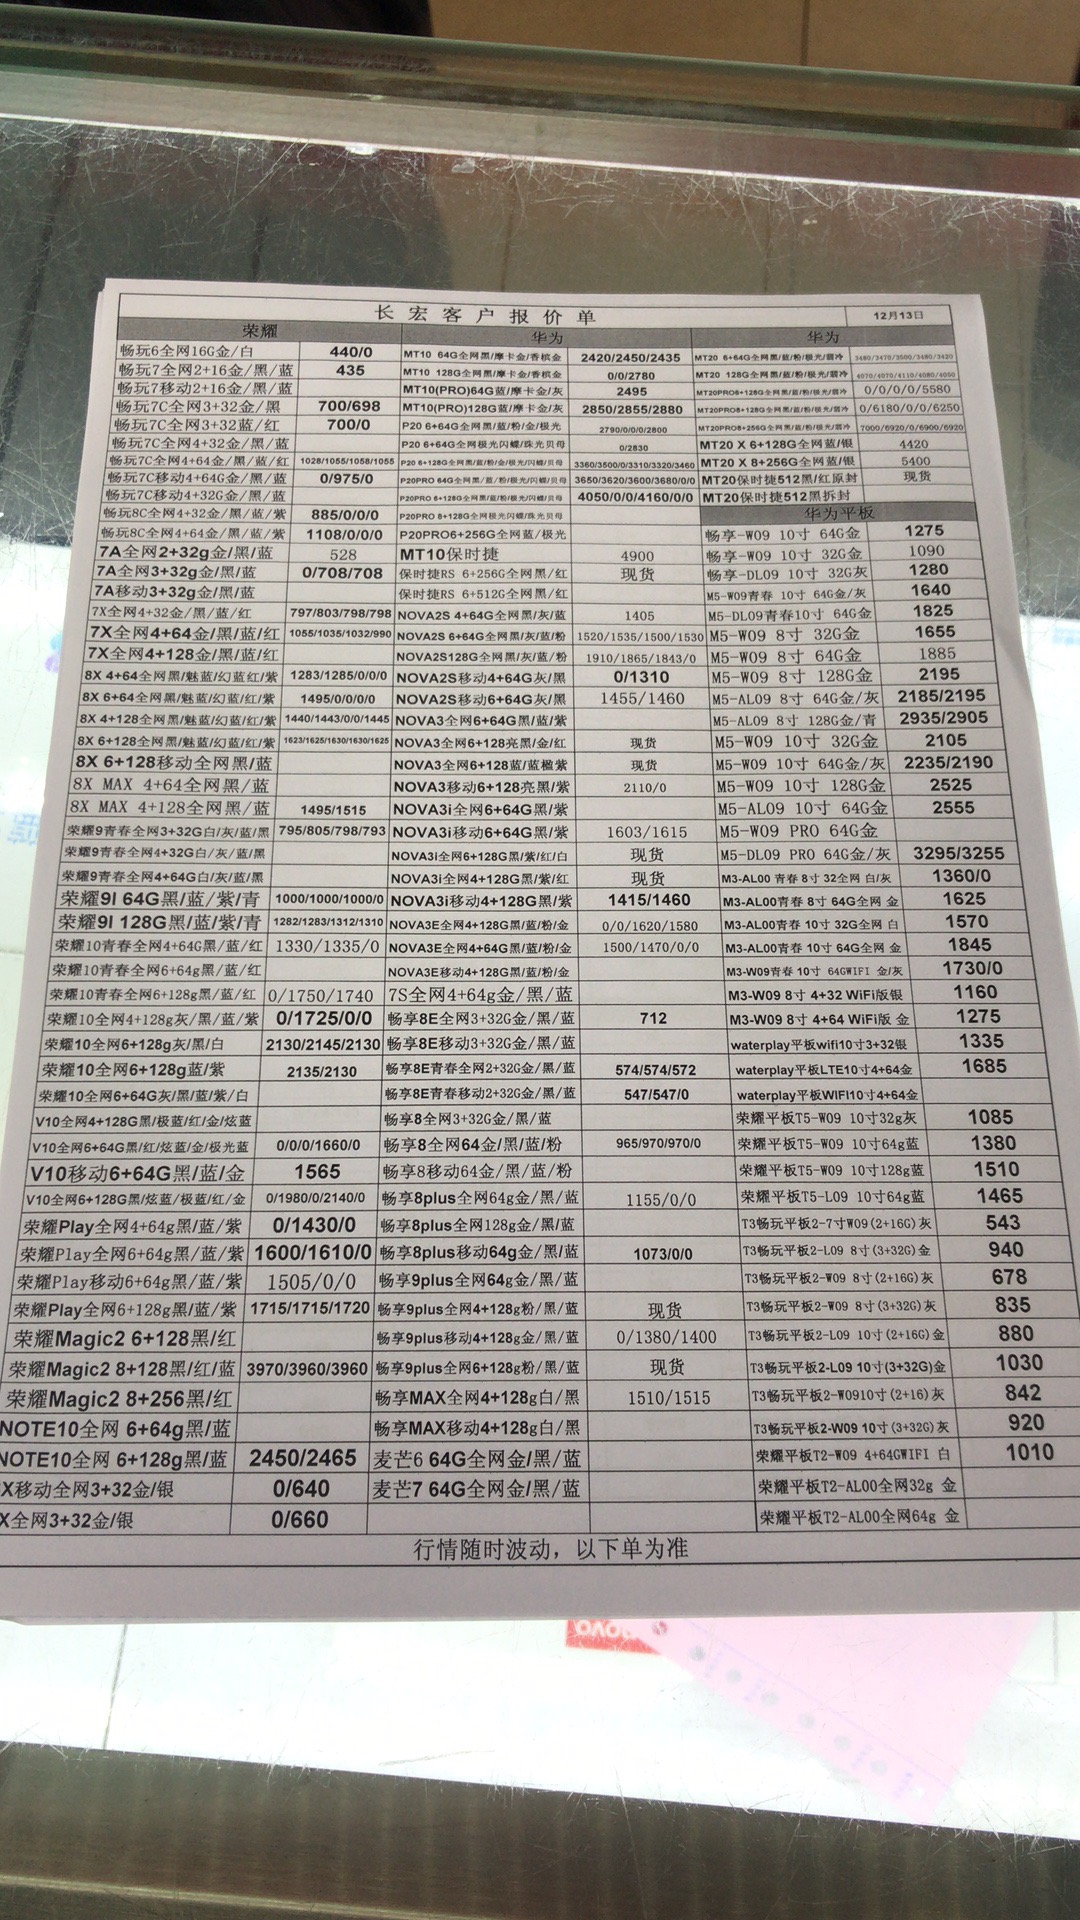 长宏客户报价单 12月13日
荣耀 华为 华为
畅玩6全网16G金/白 440/0 MT10 64G全网黑/摩卡金/香槟金 2420/2450/2435 MT20 6+64G全网黑/蓝/粉/极光/翡冷 3480/3470/3500/3480/3420
畅玩7全网2+16金/黑/蓝 435 MT10 128G全网黑/摩卡金/香槟金 0/0/2780 MT20 128G全网黑/蓝/粉/极光/翡冷 4070/4070/4110/4080/4050
畅玩7移动2+16金/黑/蓝 MT10(PRO)64G蓝/摩卡金/灰 2495 MT20PRO6+128G全网黑/蓝/粉/极光/翡冷 0/0/0/0/5580
畅玩7C全网3+32金/黑 700/698 MT10(PRO)128G蓝/摩卡金/灰 2850/2855/2880 MT20PRO8+128G全网黑/蓝/粉/极光/翡冷 0/6180/0/0/6250
畅玩7C全网3+32蓝/红 700/0 P20 6+64G全网黑/蓝/粉/金/极光 2790/0/0/0/2800 MT20PRO8+256G全网黑/蓝/粉/极光/翡冷 7000/6920/0/6900/6920
畅玩7C全网4+32黑/蓝 P20 6+64G全网极光闪蝶/珠光贝母 0/2830 MT20 X 6+128G全网蓝/银 4420
畅玩7C全网4+64金/黑/蓝/红 1028/1055/1058/1055 P20 6+128G全网黑/蓝/粉/金/极光/闪蝶/贝母 3360/3500/0/3310/3320/3460 MT20 X 8+256G全网蓝/银 5400
畅玩7C移动4+64G金/黑/蓝 0/975/0 P20PRO 64G全网黑/蓝/粉/极光/闪蝶/贝母 3650/3620/3600/3680/0/0 MT20保时捷512黑/红原封 现货
畅玩7C移动4+32G金/黑/蓝 P20PRO 6+128G全网黑/蓝/粉/极光/闪蝶/贝母 4050/0/0/4160/0/0 MT20保时捷512黑拆封
畅玩8C全网4+32金/黑/蓝/紫 885/0/0/0 P20PRO 8+128G全网极光闪蝶/珠光贝母 华为平板
畅玩8C全网4+64金/黑/蓝/紫 1108/0/0/0 P20PRO6+256G全网蓝/极光 畅享-W09 10寸 64G金 1275
7A全网2+32g金/黑/蓝 528 MT10保时捷 4900 畅享-W09 10寸 32G金 1090
7A全网3+32g金/黑/蓝 0/708/708 保时捷RS 6+256G全网黑/红 现货 畅享-DL09 10寸 32G灰 1280
7A移动3+32g金/黑/蓝 保时捷RS 6+512G全网黑/红 M5-W09青春 10寸 64G金/灰 1640
7X全网4+32金/黑/蓝/红 797/803/798/798 NOVA2S 4+64G全网黑/灰/蓝 1405 M5-DL09青春10寸 64G金 1825
7X全网4+64金/黑/蓝/红 1055/1035/1032/990 NOVA2S 6+64G全网黑/灰/蓝/粉 1520/1535/1500/1530 M5-W09 8寸 32G金 1655
7X全网4+128金/黑/蓝/红 NOVA2S128G全网黑/灰/蓝/粉 1910/1865/1843/0 M5-W09 8寸 64G金 1885
8X 4+64全网黑/魅蓝/幻蓝红/紫 1283/1285/0/0/0 NOVA2S移动4+64G灰/黑 0/1310 M5-W09 8寸 128G金 2195
8X 6+64全网黑/魅蓝/幻蓝/红/紫 1495/0/0/0/0 NOVA2S移动6+64G灰/黑 1455/1460 M5-AL09 8寸 64G金/灰 2185/2195
8X 4+128全网黑/魅蓝/幻蓝/红/紫 1440/1443/0/0/1445 NOVA3全网6+64G黑/蓝/紫 M5-AL09 8寸 128G金/青 2935/2905
8X 6+128全网黑/魅蓝/幻蓝/红/紫 1623/1625/1630/1630/1625 NOVA3全网6+128亮黑/金/红 现货 M5-W09 10寸 32G金 2105
8X 6+128移动全网黑/蓝 NOVA3全网6+128蓝/蓝楹紫 现货 M5-W09 10寸 64G金/灰 2235/2190
8X MAX 4+64全网黑/蓝 NOVA3移动6+128亮黑/紫 2110/0 M5-W09 10寸 128G金 2525
8X MAX 4+128全网黑/蓝 1495/1515 NOVA3i全网6+64G黑/紫 M5-AL09 10寸 64G金 2555
荣耀9青春全网3+32G白/灰/蓝/黑 795/805/798/793 NOVA3i移动6+64G黑/紫 1603/1615 M5-W09 PRO 64G金
荣耀9青春全网4+32G白/灰/蓝/黑 NOVA3i全网6+128G黑/紫/红/白 现货 M5-DL09 PRO 64G金/灰 3295/3255
荣耀9青春全网4+64G白/灰/蓝/黑 NOVA3i全网4+128G黑/紫/红 现货 M3-AL00 青春 8寸 32全网 白/灰 1360/0
荣耀9I 64G黑/蓝/紫/青 1000/1000/1000/0 NOVA3i移动4+128G黑/紫 1415/1460 M3-AL00青春 8寸 64G全网 金 1625
荣耀9I 128G黑/蓝/紫/青 1282/1283/1312/1310 NOVA3E全网4+128G黑/蓝/粉/金 0/0/1620/1580 M3-AL00青春 10寸 32G全网 白 1570
荣耀10青春全网4+64G黑/蓝/红 1330/1335/0 NOVA3E全网4+64G黑/蓝/粉/金 1500/1470/0/0 M3-AL00青春 10寸 64G全网 金 1845
荣耀10青春全网6+64g黑/蓝/红 NOVA3E移动4+128G黑/蓝/粉/金 M3-W09青春 10寸 64GWIFI 金/灰 1730/0
荣耀10青春全网6+128g黑/蓝/红 0/1750/1740 7S全网4+64g金/黑/蓝 M3-W09 8寸 4+32 WiFi版银 1160
荣耀10全网4+128g灰/黑/蓝/紫 0/1725/0/0 畅享8E全网3+32G金/黑/蓝 712 M3-W09 8寸 4+64 WiFi版 金 1275
荣耀10全网6+128g灰/黑/白 2130/2145/2130 畅享8E移动3+32G金/黑/蓝 waterplay平板wifi10寸3+32银 1335
荣耀10全网6+128g蓝/紫 2135/2130 畅享8E青春全网2+32G金/黑/蓝 574/574/572 waterplay平板LTE10寸4+64金 1685
荣耀10全网6+64G灰/黑/蓝/紫/白 畅享8E青春移动2+32G金/黑/蓝 547/547/0 waterplay平板WIFI10寸4+64金
V10全网4+128G黑/极蓝/红/金/炫蓝 畅享8全网3+32G金/黑/蓝 荣耀平板T5-W09 10寸32g灰 1085
V10全网6+64G黑/红/炫蓝/金/极光蓝 0/0/0/1660/0 畅享8全网64金/黑/蓝/粉 965/970/970/0 荣耀平板T5-W09 10寸64g蓝 1380
V10移动6+64G黑/蓝/金 1565 畅享8移动64金/黑/蓝/粉 荣耀平板T5-W09 10寸128g蓝 1510
V10全网6+128G黑/炫蓝/极蓝/红/金 0/1980/0/2140/0 畅享8plus全网64g金/黑/蓝 1155/0/0 荣耀平板T5-L09 10寸64g蓝 1465
荣耀Play全网4+64g黑/蓝/紫 0/1430/0 畅享8plus全网128g金/黑/蓝 T3畅玩平板2-7寸W09(2+16G)灰 543
荣耀Play全网6+64g黑/蓝/紫 1600/1610/0 畅享8plus移动64g金/黑/蓝 1073/0/0 T3畅玩平板2-L09 8寸(3+32G)金 940
荣耀Play移动6+64g黑/蓝/紫 1505/0/0 畅享9plus全网64g金/黑/蓝 T3畅玩平板2-W09 8寸(2+16G)灰 678
荣耀Play全网6+128g黑/蓝/紫 1715/1715/1720 畅享9plus全网4+128g粉/黑/蓝 现货 T3畅玩平板2-W09 8寸(3+32G)灰 835
荣耀Magic2 6+128黑/红 畅享9plus移动4+128g金/黑/蓝 0/1380/1400 T3畅玩平板2-L09 10寸(2+16G)金 880
荣耀Magic2 8+128黑/红/蓝 3970/3960/3960 畅享9plus全网6+128g粉/黑/蓝 现货 T3畅玩平板2-L09 10寸(3+32G)金 1030
荣耀Magic2 8+256黑/红 畅享MAX全网4+128g白/黑 1510/1515 T3畅玩平板2-W0910寸(2+16)灰 842
NOTE10全网 6+64g黑/蓝 畅享MAX移动4+128g白/黑 T3畅玩平板2-W09 10寸(3+32G)灰 920
NOTE10全网 6+128g黑/蓝 2450/2465 麦芒6 64G全网金/黑/蓝 荣耀平板T2-W09 4+64GWIFI 白 1010
X移动全网3+32金/银 0/640 麦芒7 64G全网金/黑/蓝 荣耀平板T2-AL00全网32g 金
X全网3+32金/银 0/660 荣耀平板T2-AL00全网64g 金
行情随时波动，以下单为准